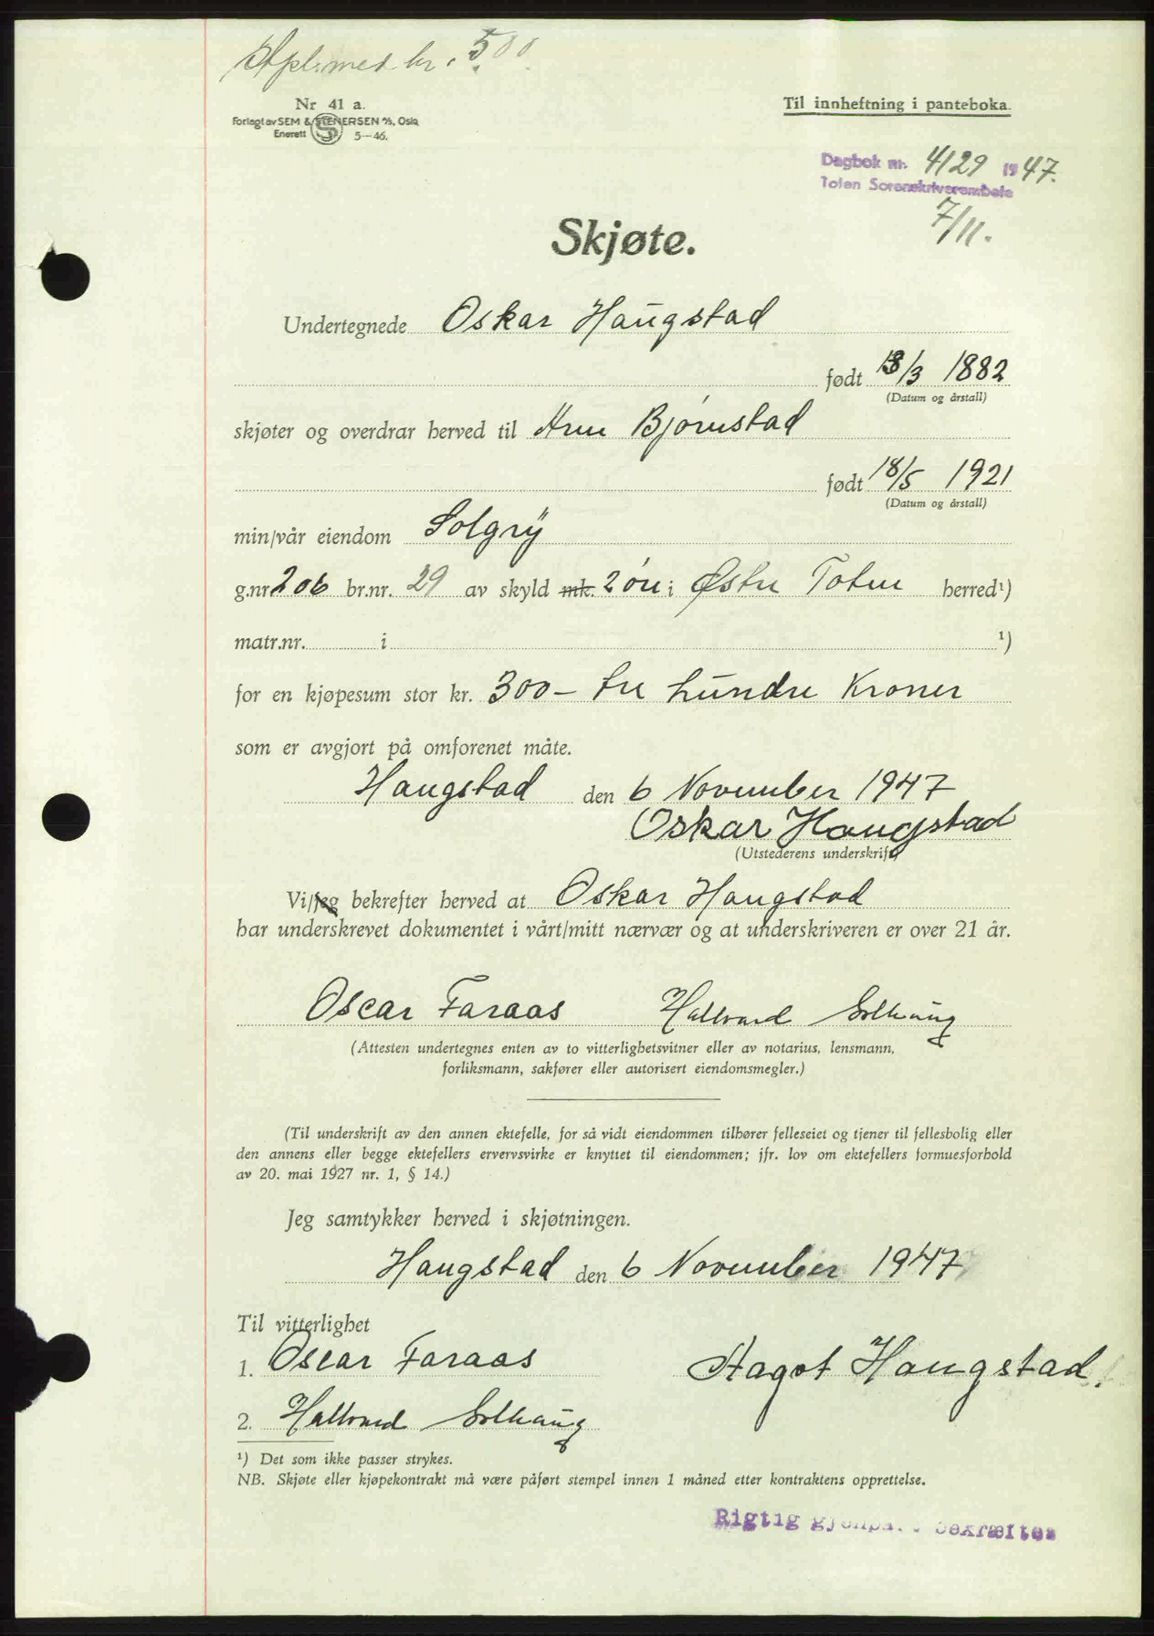 Stpl. med kr. 5.00
Nr 41 a.
Forlagt av SEM & STENERSEN A/S, Oslo
Enerett 5—46.
Til innheftning i panteboka.
Dagbok nr. 4129 1947.
Toten Sorenskriverembete
7/11.
Skjøte.
Undertegnede Oskar Haugstad
født 13/3 1882
(Datum og årstall)
skjøter og overdrar herved til Arne Bjørnstad
født 18/5 1921
(Datum og årstall)
min/vår eiendom Solgry
g.nr 206 br.nr. 29 av skyld mk. 2 øre i Østre Toten herred¹)
matr.nr. i ¹)
for en kjøpesum stor kr. 300— tre hundre Kroner
som er avgjort på omforenet måte.
Haugstad den 6 November 1947
Oskar Haugstad
(Utstederens underskrift)
Vi/jeg bekrefter herved at Oskar Haugstad
har underskrevet dokumentet i vårt/mitt nærvær og at underskriveren er over 21 år.
Oscar Faraas Hallvard Solhaug
(Attesten undertegnes enten av to vitterlighetsvitner eller av notarius, lensmann,
forliksmann, sakfører eller autorisert eiendomsmegler.)
(Til underskrift av den annen ektefelle, for så vidt eiendommen tilhører felleseiet og tjener til fellesbolig eller
den annens eller begge ektefellers ervervsvirke er knyttet til eiendommen; jfr. lov om ektefellers formuesforhold
av 20. mai 1927 nr. 1, § 14.)
Jeg samtykker herved i skjøtningen.
Haugstad den 6 November 1947
Til vitterlighet
1. Oscar Faraas Hagot Haugstad.
2. Hallvard Solhaug
¹) Det som ikke passer strykes.
NB. Skjøte eller kjøpekontrakt må være påført stempel innen 1 måned etter kontraktens opprettelse.
Rigtig gjenpart bekræftes